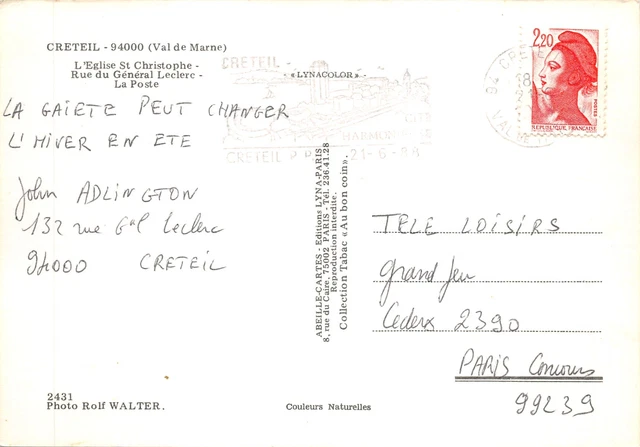 CRETEIL - 94000 (Val de Marne)
L'Eglise St Christophe -
Rue du Général Leclerc -
La Poste
LA GAIETE PEUT CHANGER
L'HIVER EN ETE
John ADLINGTON
132 rue Gal Leclerc
94000 CRETEIL
2431
Photo Rolf WALTER.
« LYNACOLOR »
ABEILLE-CARTES - Editions LYNA-PARIS
8, rue du Caire, 75002 PARIS - Tél. 236.41.28
Reproduction interdite.
Collection Tabac «Au bon coin».
Couleurs Naturelles
CRETEIL -
HARMONIE
CRETEIL
21-6-88
94 CRETE
18
VAL DE
2,20
POSTES
REPUBLIQUE FRANÇAISE
TELE LOISIRS
Grand Jeu
Cedex 2390
PARIS Concours
99239